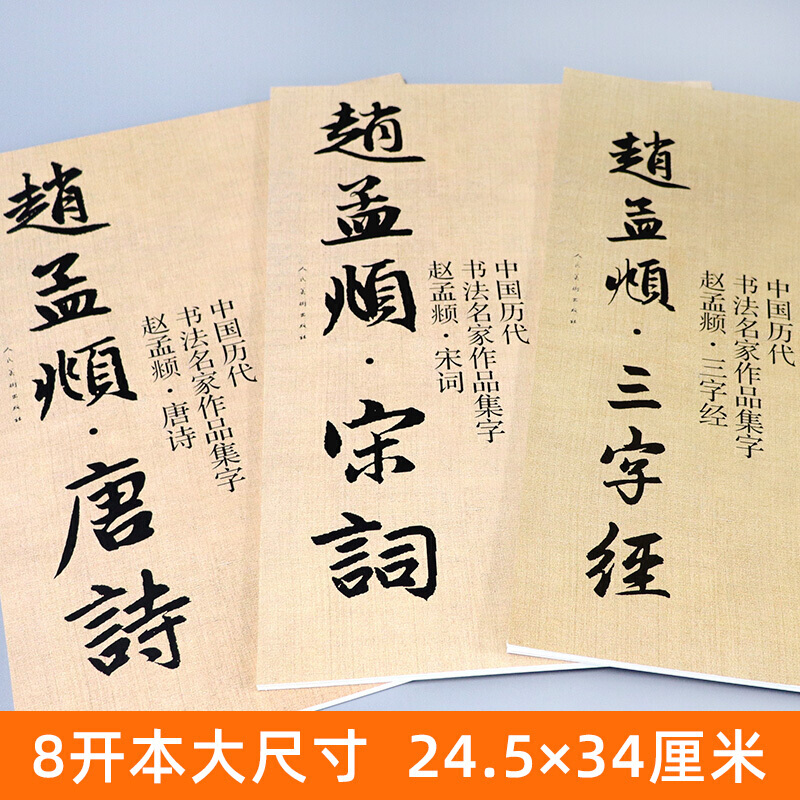 趙孟頫·唐詩
中国历代
书法名家作品集字
赵孟𫖯·唐诗
人民美術出版社
趙孟頫·宋詞
中国历代
书法名家作品集字
赵孟𫖯·宋词
人民美術出版社
趙孟頫·三字經
中国历代
书法名家作品集字
赵孟𫖯·三字经
人民美術出版社
8开本大尺寸 24.5×34厘米